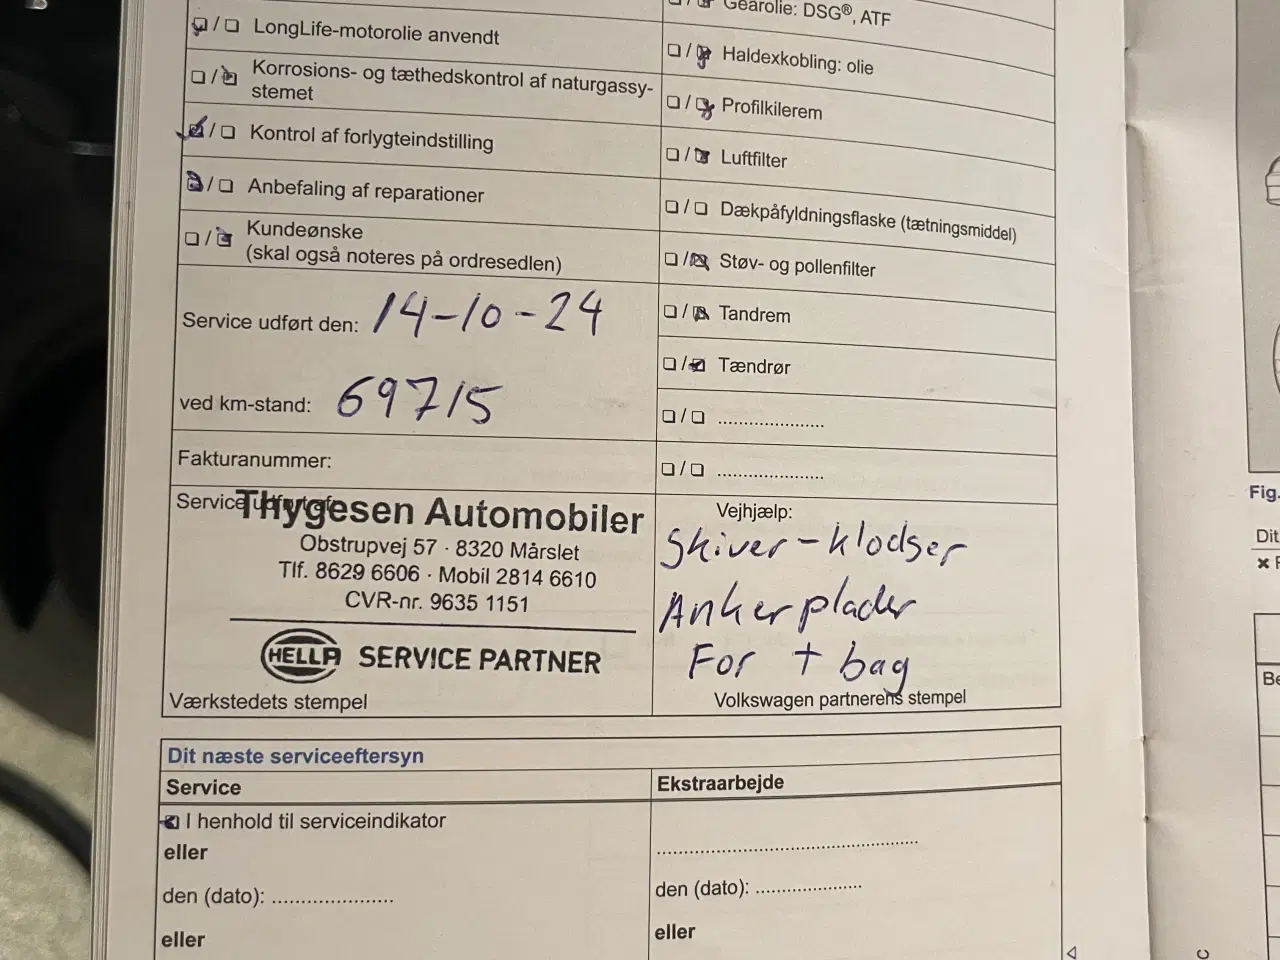 Gearolie: DSG®, ATF
❏ / ❏ LongLife-motorolie anvendt
❏ / ❏ Haldexkobling: olie
❏ / ❏ Korrosions- og tæthedskontrol af naturgassy-
stemet
❏ / ❏ Profilkilerem
❏ / ❏ Kontrol af forlygteindstilling
❏ / ❏ Luftfilter
❏ / ❏ Anbefaling af reparationer
❏ / ❏ Dækpåfyldningsflaske (tætningsmiddel)
❏ / ❏ Kundeønske
(skal også noteres på ordresedlen)
❏ / ❏ Støv- og pollenfilter
Service udført den: 14-10-24
❏ / ❏ Tandrem
❏ / ❏ Tændrør
ved km-stand: 69715
❏ / ❏ .....................
Fakturanummer:
❏ / ❏ .....................
Service udført af:
Thygesen Automobiler
Obstrupvej 57 · 8320 Mårslet
Tlf. 8629 6606 · Mobil 2814 6610
CVR-nr. 9635 1151
HELLA SERVICE PARTNER
Værkstedets stempel
Vejhjælp:
Skiver-klodser
Ankerplader
For + bag
Volkswagen partnerens stempel
Dit næste serviceeftersyn
Service
Ekstraarbejde
❏ I henhold til serviceindikator
eller
den (dato): ........................
eller
....................................................
den (dato): .....................
eller
Fig.
Dit
Be